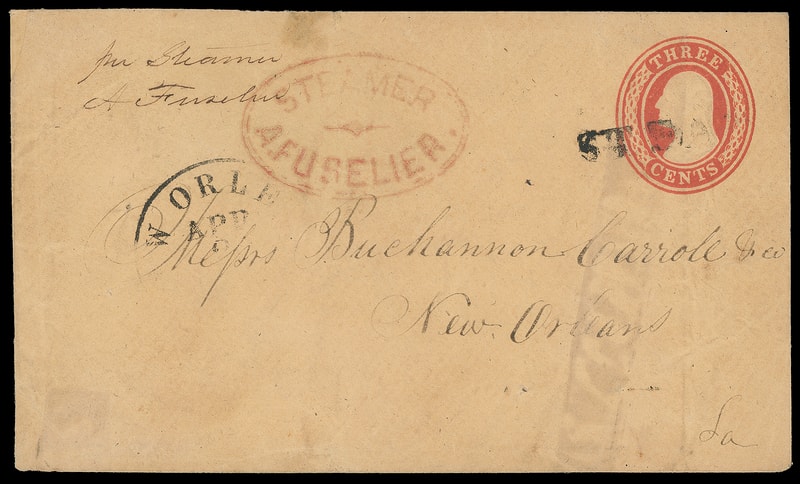 per Steamer
A Fuselier
STEAMER
A. FUSELIER.
THREE
CENTS
W ORLE
APR
Messrs Buchannon Carroll & co
New Orleans
La